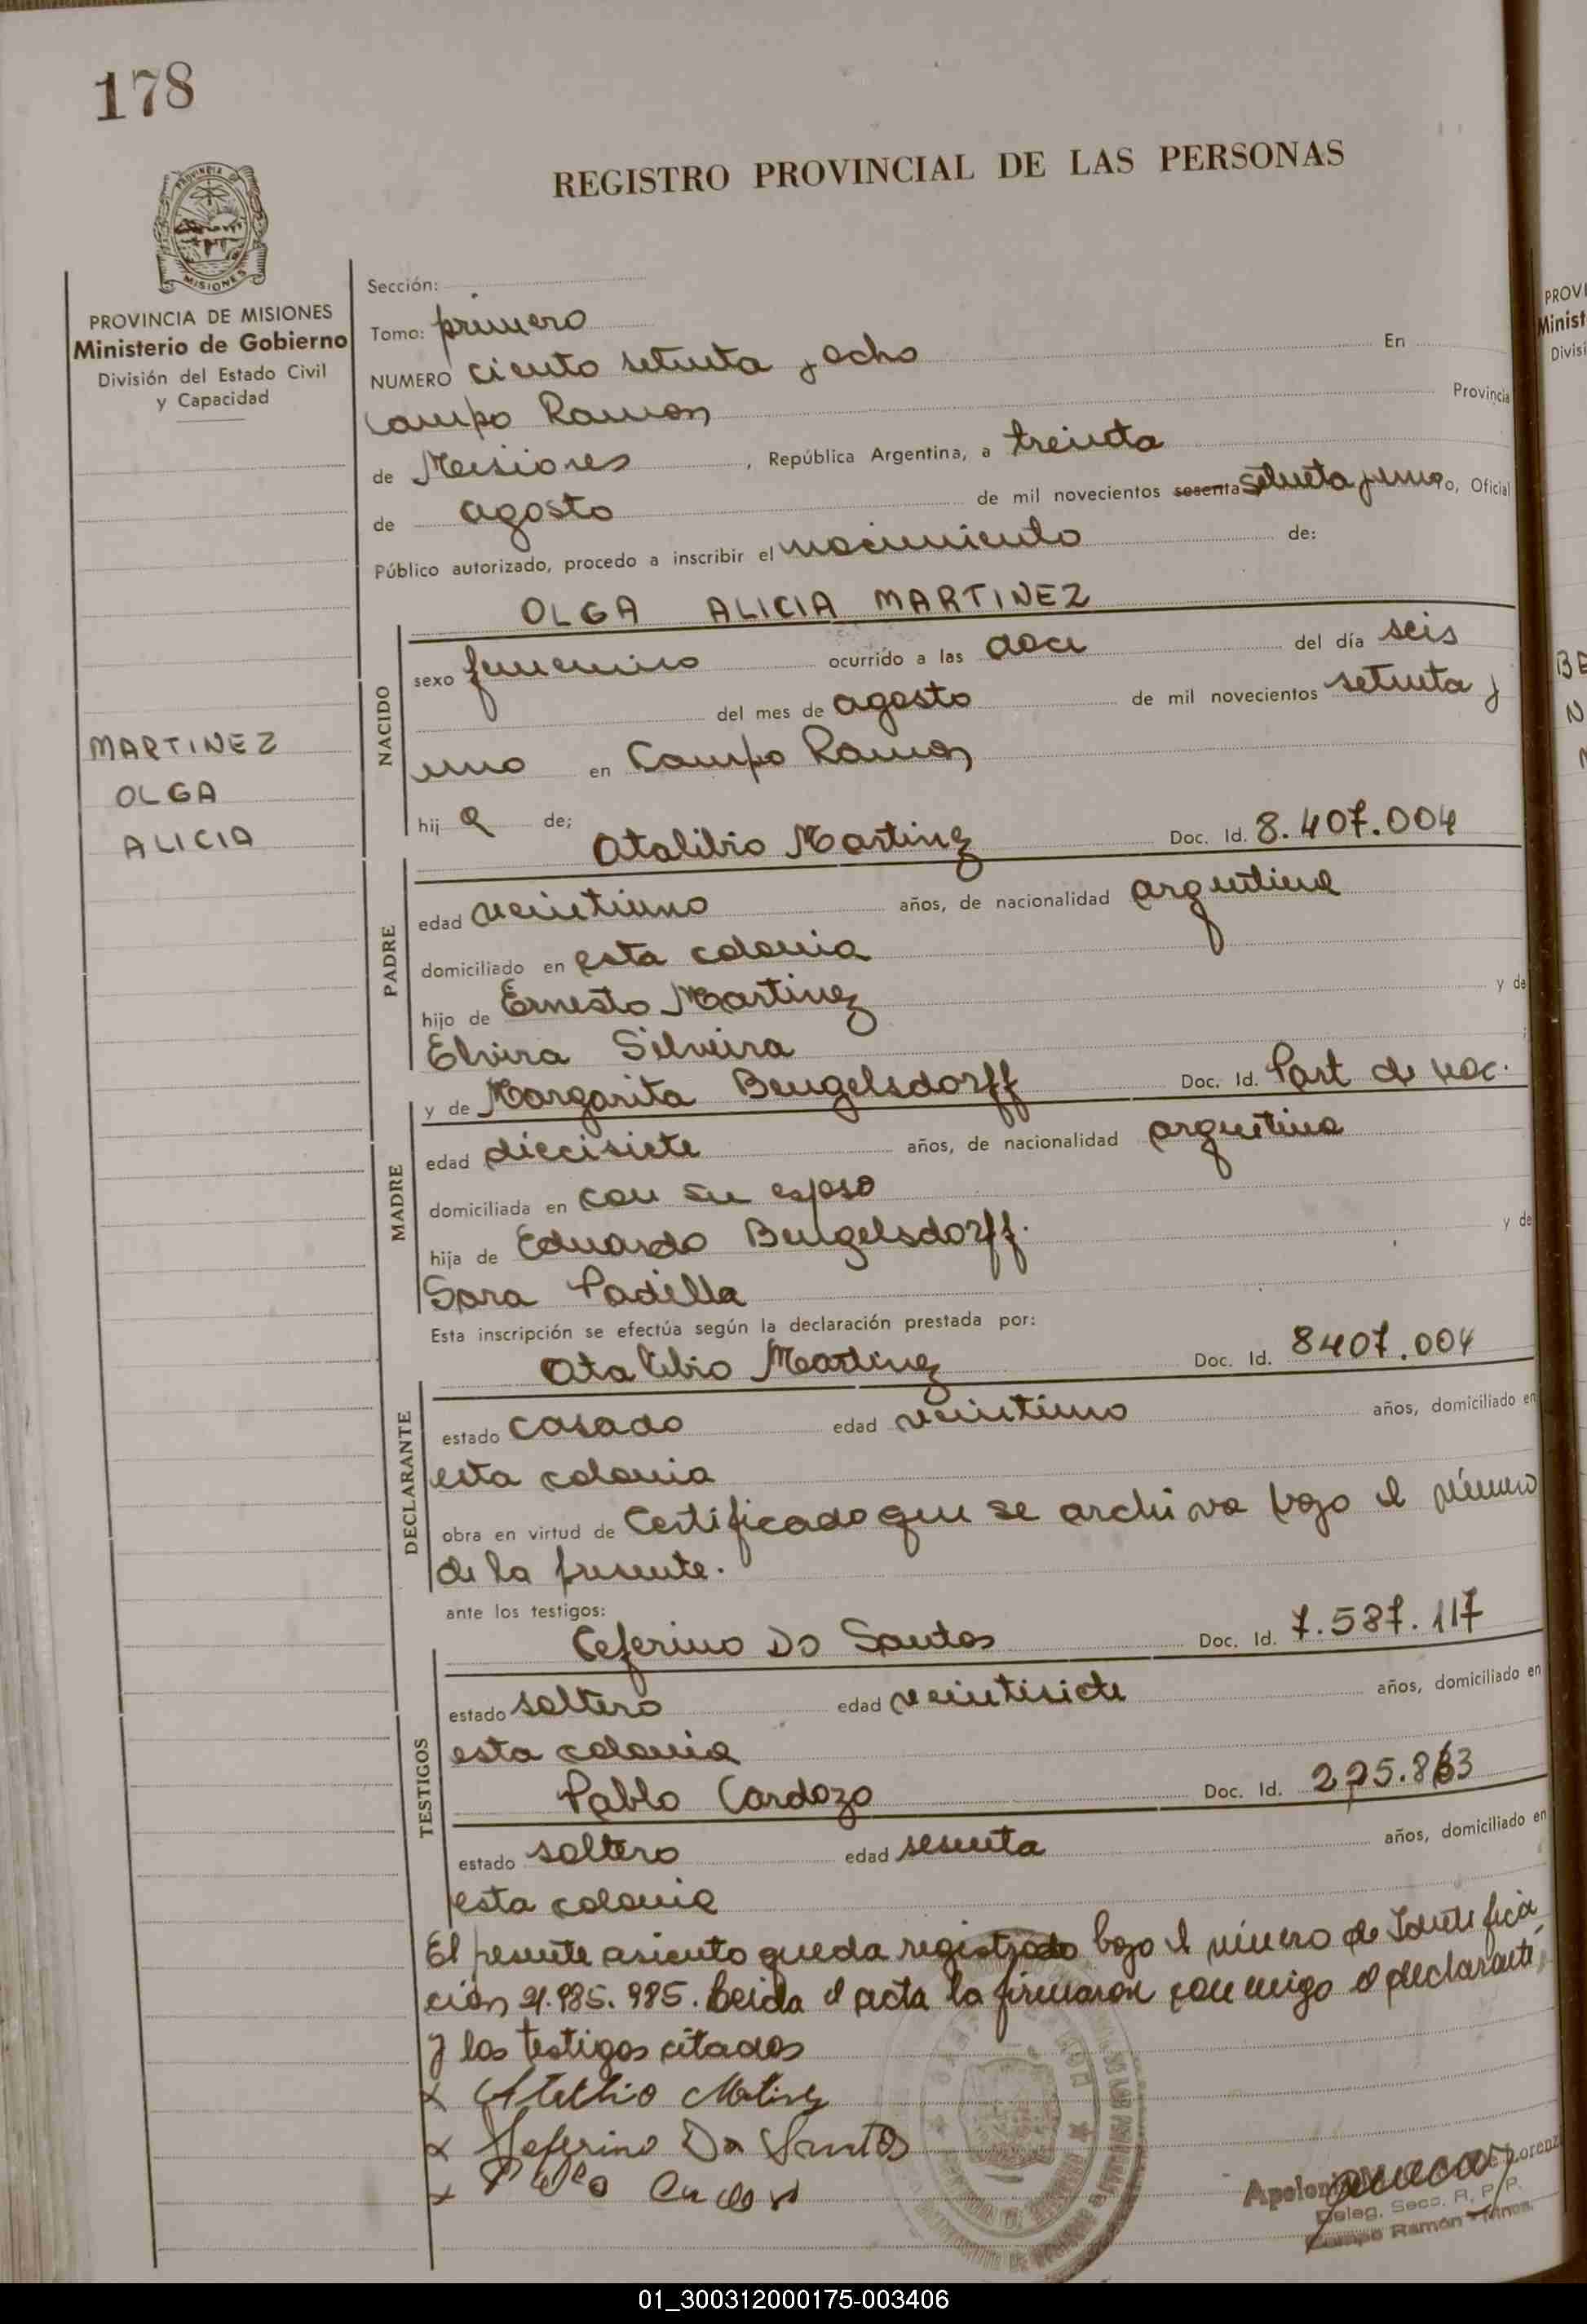 178
REGISTRO PROVINCIAL DE LAS PERSONAS
PROVINCIA DE MISIONES
Ministerio de Gobierno
División del Estado Civil
y Capacidad
MARTINEZ
OLGA
ALICIA
Sección:
Tomo: primero
NUMERO ciento setenta y ocho En
Campo Ramon Provincia
de Misiones, República Argentina, a treinta
de agosto de mil novecientos sesenta setenta y uno, Oficial
Público autorizado, procedo a inscribir el nacimiento de:
OLGA ALICIA MARTINEZ
NACIDO
sexo femenino ocurrido a las doce del día seis
del mes de agosto de mil novecientos setenta y
uno en Campo Ramon
hij a de;
Atalibio Martinez Doc. Id. 8.407.004
PADRE
edad veintiuno años, de nacionalidad argentina
domiciliado en esta colonia
hijo de Ernesto Martinez y de
Elvira Silveira ;
y de Margarita Bengelsdorff Doc. Id. Part de nac.
MADRE
edad diecisiete años, de nacionalidad argentina
domiciliada en con su esposo
hija de Eduardo Bengelsdorff. y de
Sara Padilla
Esta inscripción se efectúa según la declaración prestada por:
Atalibio Martinez Doc. Id. 8407.004
DECLARANTE
estado casado edad veintiuno años, domiciliado en
esta colonia
obra en virtud de Certificado que se archiva bajo el número
de la presente.
ante los testigos:
Ceferino Do Santos Doc. Id. 7.587.117
TESTIGOS
estado soltero edad veintisiete años, domiciliado en
esta colonia
Pablo Cardozo Doc. Id.
estado soltero edad sesenta años, domiciliado en
esta colonia
El presente asiento queda registrado bajo el número de Identifica
ción 21.985.985. Leida el acta la firmaron conmigo el declarante
y los testigos citados
Martinez
Seferino Do Santos
Deleg. Secc. R. P. P.
Campo Ramón - Mnes.
01_300312000175-003406